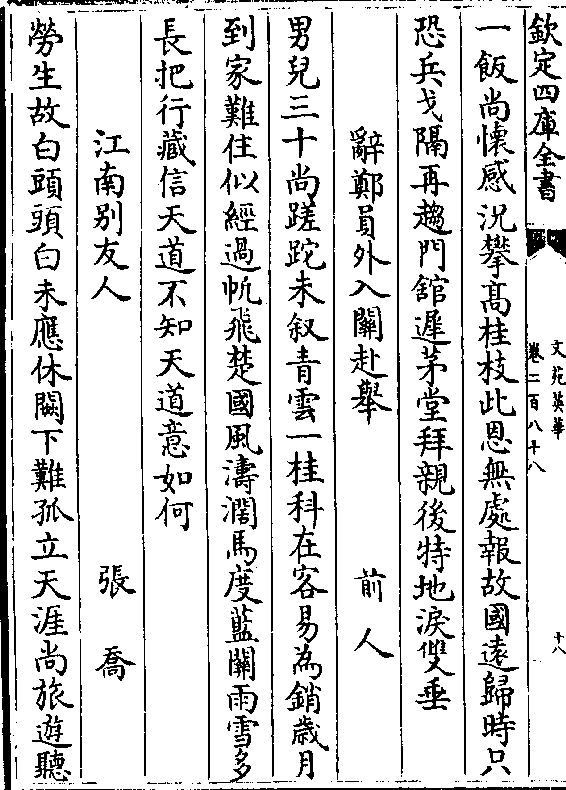 欽定四庫全書
文苑英華
卷二百八十八
十八
一飯尚懷感況攀髙桂枝此恩無處報故國遠歸時只
恐兵戈隔再趨門舘遲茅堂拜親後特地淚雙垂
辭鄭員外入關赴舉
前人
男兒三十尚蹉跎未叙青雲一桂科在客易為銷歲月
到家難住似經過帆飛楚國風濤濶馬度藍關雨雪多
長把行藏信天道不知天道意如何
江南别友人
張喬
勞生故白頭頭白未應休闕下難孤立天涯尚旅遊聽